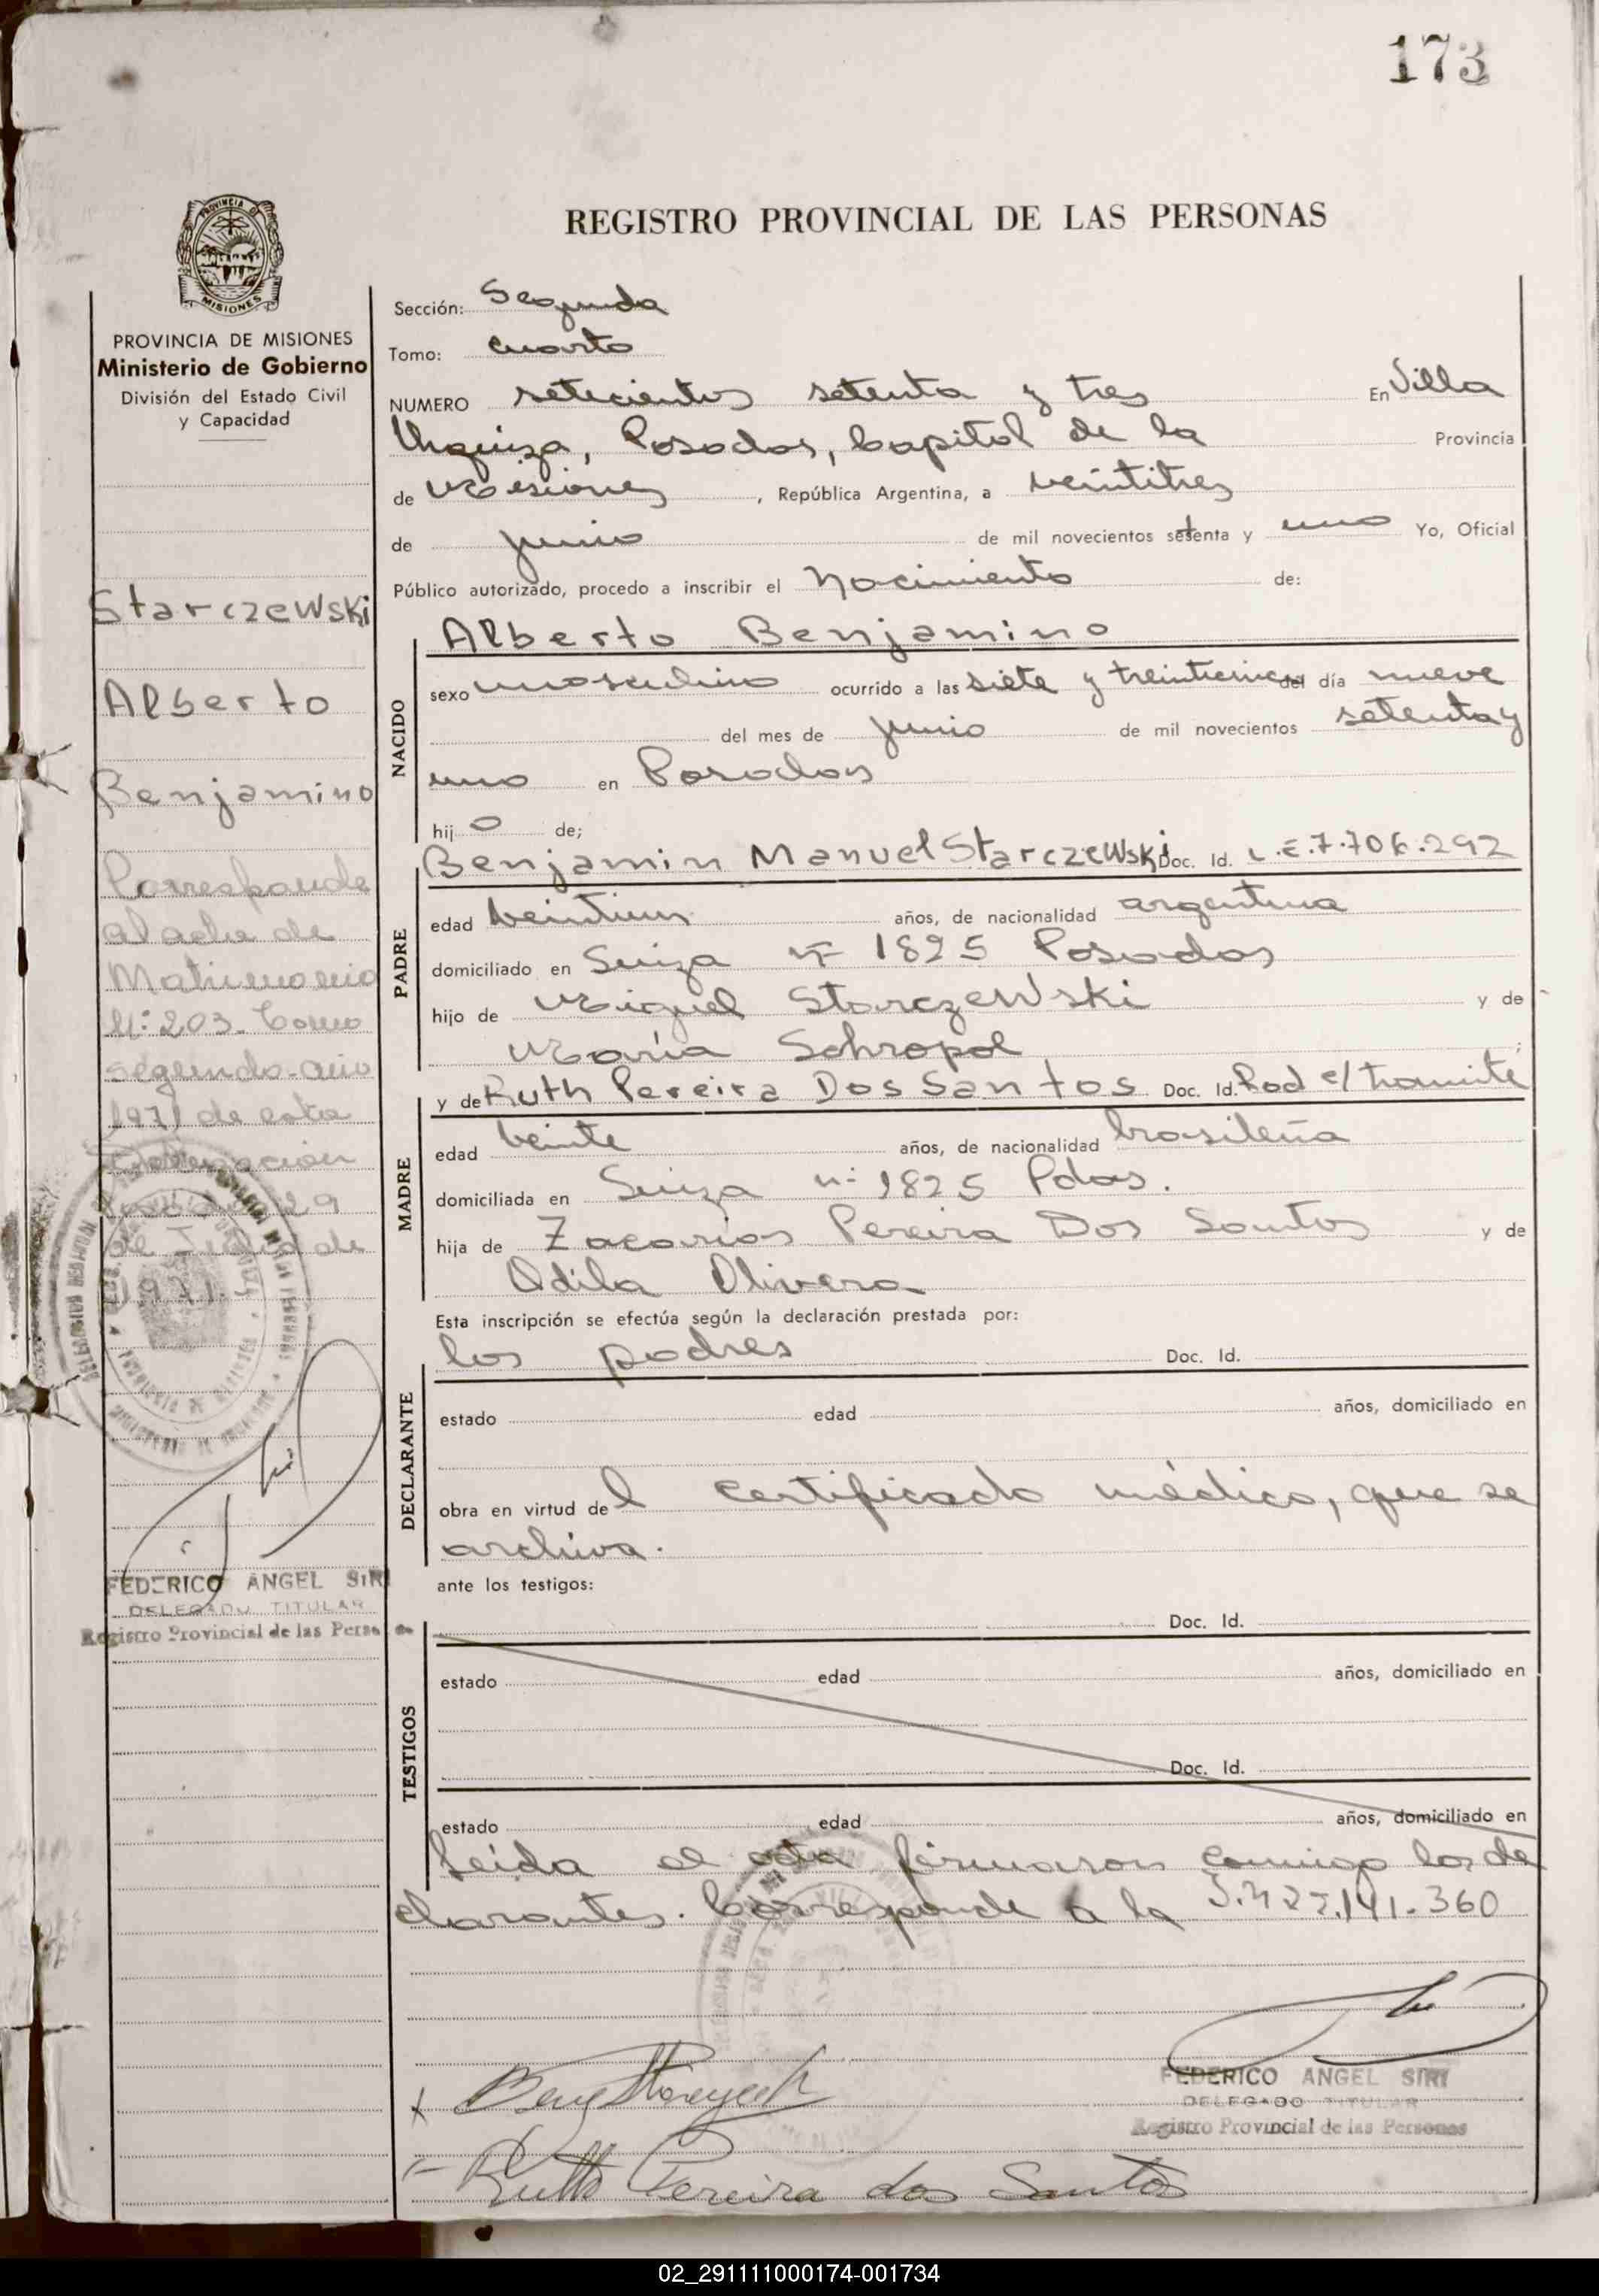 173
REGISTRO PROVINCIAL DE LAS PERSONAS
PROVINCIA DE MISIONES
MISIONES
PROVINCIA DE MISIONES
Ministerio de Gobierno
División del Estado Civil
y Capacidad
Starczewski
Alberto
Benjamino
Corresponde
al acta de
Matrimonio
Nº: 203. Tomo
segundo. año
1971 de esta
Delegación
29
de Junio de
1971.
FEDERICO ANGEL SIRI
DELEGADO TITULAR
Registro Provincial de las Perso
Sección: Segunda
Tomo: cuarto
NUMERO setecientos setenta y tres En Villa
Urquiza, Posadas, Capital de la Provincia
de Misiones, República Argentina, a veintitres
de junio de mil novecientos setenta y uno Yo, Oficial
Público autorizado, procedo a inscribir el Nacimiento de:
NACIDO
Alberto Benjamino
sexo masculino ocurrido a las siete y treinticinco del día nueve
del mes de junio de mil novecientos setenta y
uno en Posadas
hijo de;
PADRE
Benjamin Manuel Starczewski Doc. Id. L.E.7.706.292
edad veintiun años, de nacionalidad argentina
domiciliado en Suiza nº 1825 Posadas
hijo de Miguel Starczewski y de
María Schropol
MADRE
y de Ruth Pereira Dos Santos Doc. Id. Rad e/ tramite
edad veinte años, de nacionalidad brasileña
domiciliada en Suiza nº 1825 Pdas.
hija de Zacarias Pereira Dos Santos y de
Odila Olivera
Esta inscripción se efectúa según la declaración prestada por:
los padres Doc. Id.
DECLARANTE
estado edad años, domiciliado en
obra en virtud del certificado médico, que se
archiva.
ante los testigos:
TESTIGOS
Doc. Id.
estado edad años, domiciliado en
Doc. Id.
estado edad años, domiciliado en
Leída el acta firmaron conmigo los de
clarantes. Corresponde a la 22.141.360
FEDERICO ANGEL SIRI
DELEGADO TITULAR
Registro Provincial de las Personas
Ruth Pereira dos Santos
02_291111000174-001734